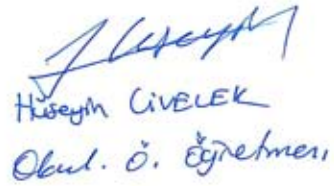 Hüseyin CİVELEK
Okul. Ö. Öğretmeni